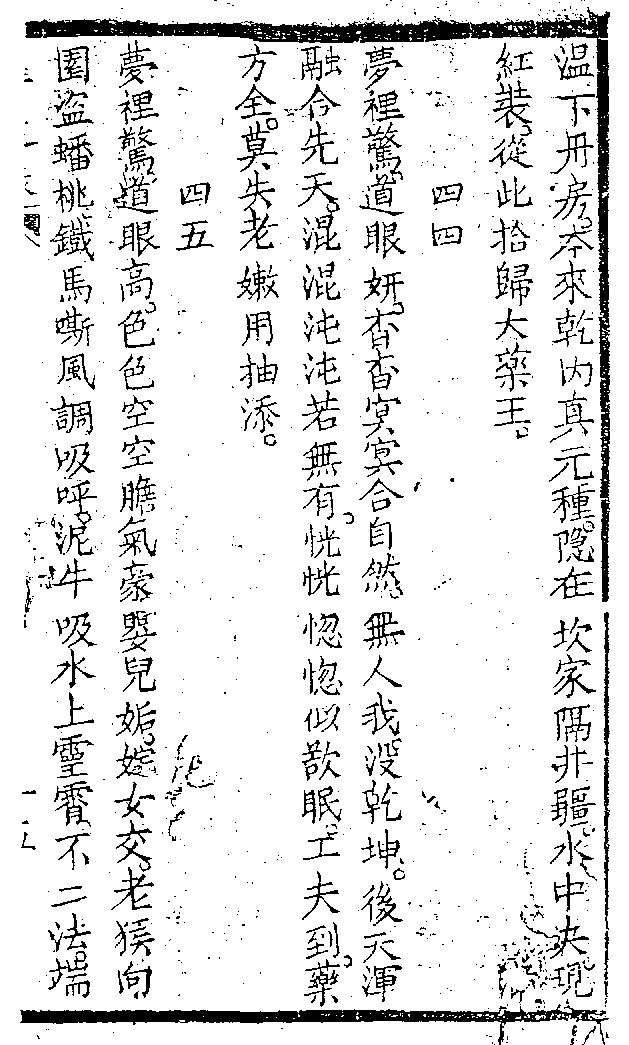 温下丹房。本來乾內真元種。隐在坎家隔井疆。水中夬現
紅裝。從此拾歸大藥王。
四四
夢裡驚。道眼妍。杳杳冥冥合自然。無人我。没乾坤。後天渾
融合先天。混混沌沌若無有。恍恍惚惚似歆眠。工夫到。藥
方全。莫失老嫩用抽添。
四五
夢裡驚。道眼高。色色空空膽氣豪。嬰兒姤。姹女交。老猿向
園盜蟠桃。鐵馬嘶風調吸呼。泥牛吸水上靈霄。不二法。端